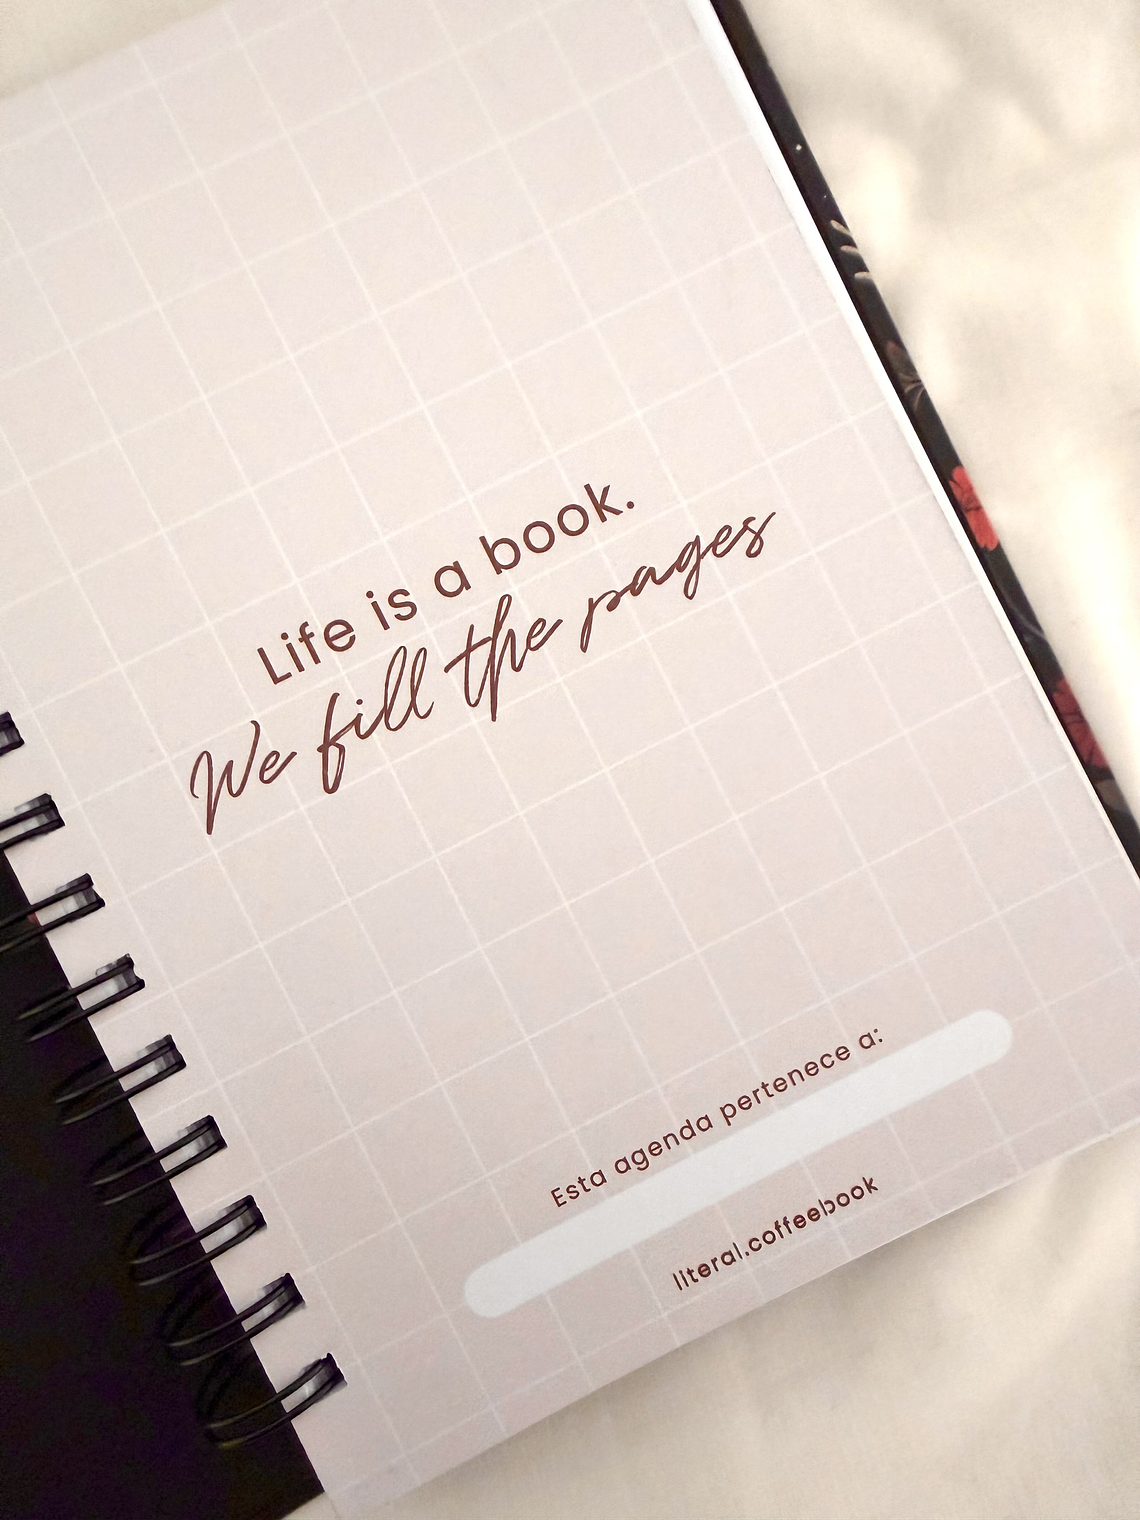 Life is a book.
We fill the pages
Esta agenda pertenece a:
literal.coffeebook